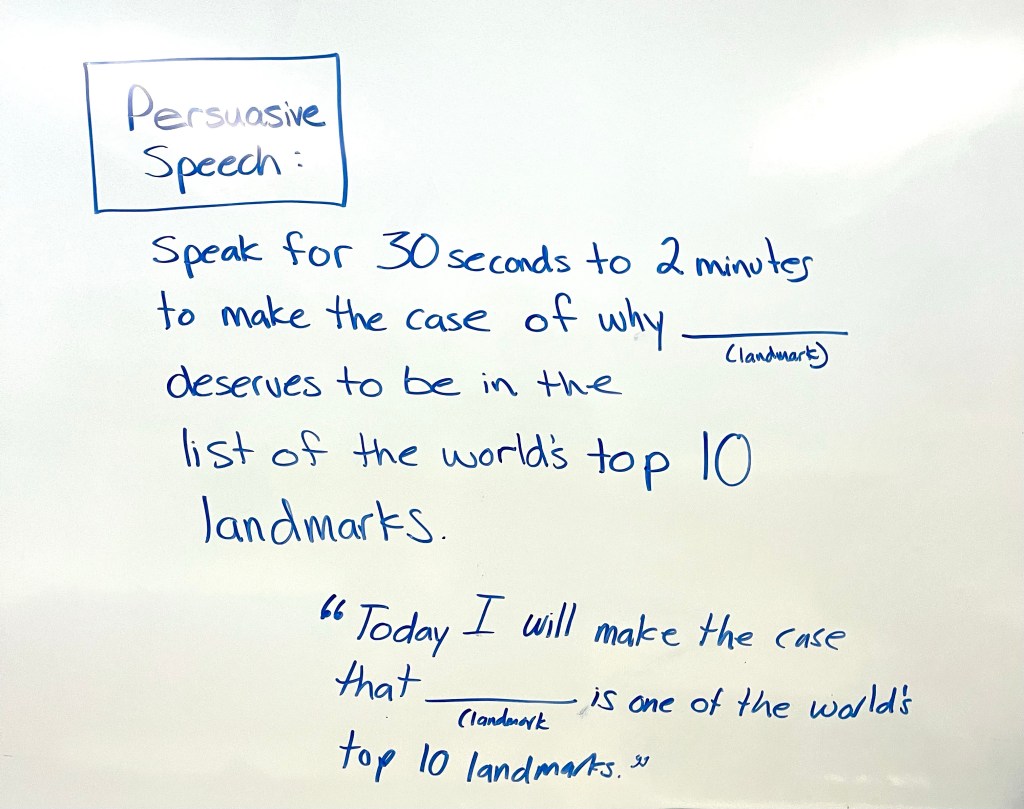 Persuasive
Speech:
Speak for 30 seconds to 2 minutes
to make the case of why ________
(landmark)
deserves to be in the
list of the world's top 10
landmarks.
"Today I will make the case
that ________ is one of the world's
(landmark
top 10 landmarks."